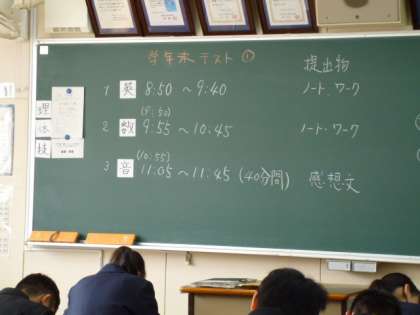 学年末テスト① 提出物
1 英 8:50～9:40 ノート、ワーク
(9:50)
2 数 9:55～10.45 ノート・ワーク
(10:55)
3 音 11.05～11.45 (40分間) 感想文
理
体
技